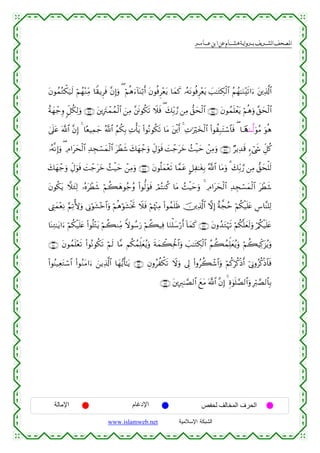 المصحف الشريف برواية هشام عن ابن عامر
ٱلَّذِينَ ءَاتَيْنَٰهُمُ ٱلْكِتَٰبَ يَعْرِفُونَهُۥ كَمَا يَعْرِفُونَ أَبْنَآءَهُمْ ۖ وَإِنَّ فَرِيقًا مِّنْهُمْ لَيَكْتُمُونَ
ٱلْحَقَّ وَهُمْ يَعْلَمُونَ ۝ ٱلْحَقُّ مِن رَّبِّكَ ۖ فَلَا تَكُونَنَّ مِنَ ٱلْمُمْتَرِينَ ۝ وَلِكُلٍّ وِجْهَةٌ
هُوَ مُوَلَّىٰهَا ۖ فَٱسْتَبِقُوا۟ ٱلْخَيْرَٰتِ ۚ أَيْنَ مَا تَكُونُوا۟ يَأْتِ بِكُمُ ٱللَّهُ جَمِيعًا ۚ إِنَّ ٱللَّهَ عَلَىٰ
كُلِّ شَىْءٍ قَدِيرٌ ۝ وَمِنْ حَيْثُ خَرَجْتَ فَوَلِّ وَجْهَكَ شَطْرَ ٱلْمَسْجِدِ ٱلْحَرَامِ ۖ وَإِنَّهُۥ
لَلْحَقُّ مِن رَّبِّكَ ۗ وَمَا ٱللَّهُ بِغَٰفِلٍ عَمَّا تَعْمَلُونَ ۝ وَمِنْ حَيْثُ خَرَجْتَ فَوَلِّ وَجْهَكَ
شَطْرَ ٱلْمَسْجِدِ ٱلْحَرَامِ ۚ وَحَيْثُ مَا كُنتُمْ فَوَلُّوا۟ وُجُوهَكُمْ شَطْرَهُۥ لِئَلَّا يَكُونَ
لِلنَّاسِ عَلَيْكُمْ حُجَّةٌ إِلَّا ٱلَّذِينَ ظَلَمُوا۟ مِنْهُمْ فَلَا تَخْشَوْهُمْ وَٱخْشَوْنِى وَلِأُتِمَّ نِعْمَتِى
عَلَيْكُمْ وَلَعَلَّكُمْ تَهْتَدُونَ ۝ كَمَآ أَرْسَلْنَا فِيكُمْ رَسُولًا مِّنكُمْ يَتْلُوا۟ عَلَيْكُمْ ءَايَٰتِنَا
وَيُزَكِّيكُمْ وَيُعَلِّمُكُمُ ٱلْكِتَٰبَ وَٱلْحِكْمَةَ وَيُعَلِّمُكُم مَّا لَمْ تَكُونُوا۟ تَعْلَمُونَ ۝
فَٱذْكُرُونِىٓ أَذْكُرْكُمْ وَٱشْكُرُوا۟ لِى وَلَا تَكْفُرُونِ ۝ يَٰٓأَيُّهَا ٱلَّذِينَ ءَامَنُوا۟ ٱسْتَعِينُوا۟
بِٱلصَّبْرِ وَٱلصَّلَوٰةِ ۚ إِنَّ ٱللَّهَ مَعَ ٱلصَّٰبِرِينَ ۝
الحرف المخالف لحفص الإدغام الإمالة
الشبكة الإسلامية www.islamweb.net